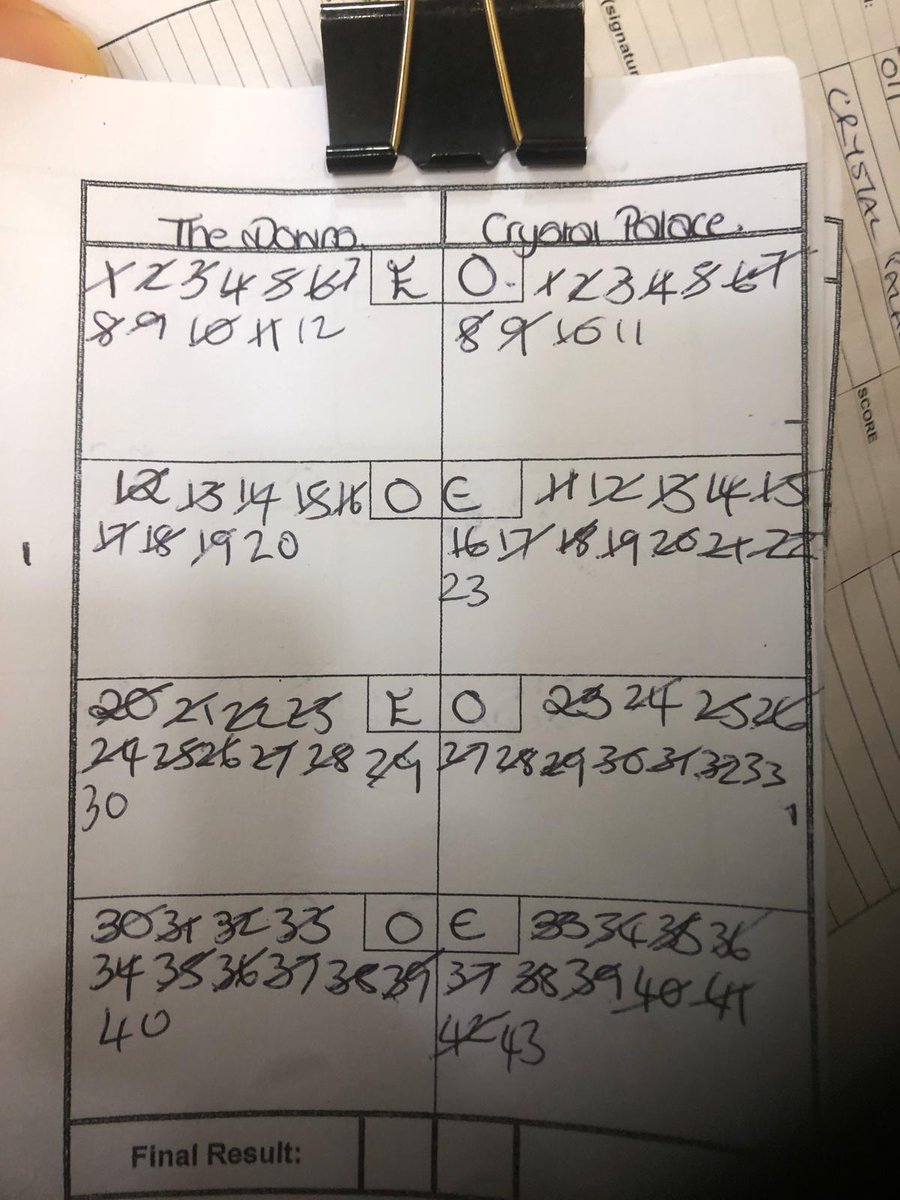 (signatur
011
CRYSTAL
SCORE
The Downs. Crystal Palace.
1 2 3 4 5 6 7 E O. 1 2 3 4 5 6 7
8 9 10 11 12 8 9 10 11
12 13 14 15 16 O E 11 12 13 14 15
17 18 19 20 16 17 18 19 20 21 22
23
20 21 22 23 E O 23 24 25 26
24 25 26 27 28 29 27 28 29 30 31 32 33
30
30 31 32 33 O E 33 34 35 36
34 35 36 37 38 39 37 38 39 40 41
40 42 43
Final Result: